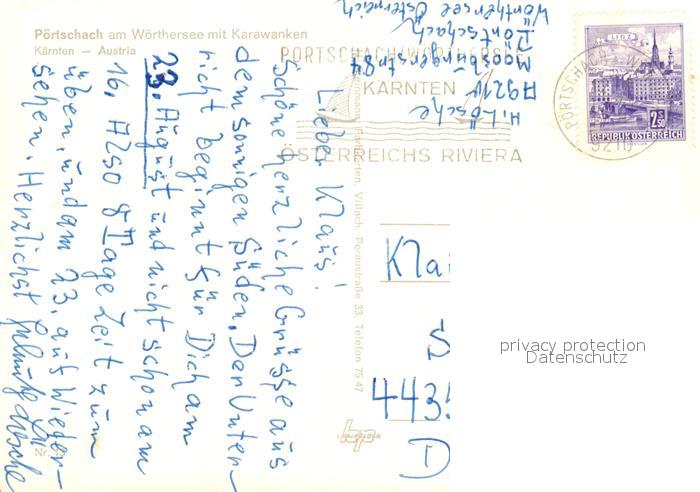 Pörtschach am Wörthersee mit Karawanken
Kärnten – Austria
PÖRTSCHACH/WÖRTHERSEE
KÄRNTEN
ÖSTERREICHS RIVIERA
H. Lösche
A9210
Moosburgerstr. 84
Pörtschach
Wörthersee Österreich
LINZ
2.50
REPUBLIK ÖSTERREICH
9210
Lieber Klaus!
Schöne herzliche Grüsse aus
dem sonnigen Süden. Der Unter-
richt beginnt für Dich am
23. August und nicht schon am
16. Also 8 Tage Zeit zum
üben, und am 23. auf Wieder-
sehen. Herzlichst
Farbkarten, Villach, Peraustraße 33, Telefon 75 47
Nr.
Kla
S
443
D
privacy protection
Datenschutz